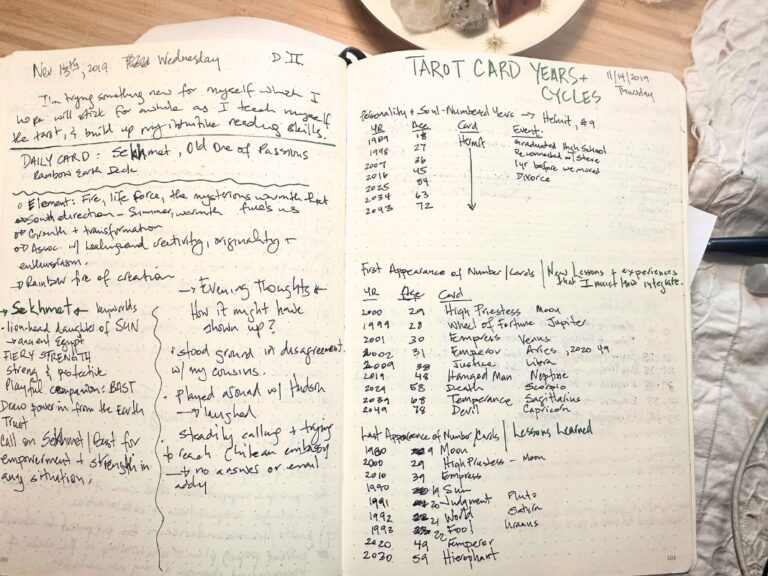 Nov 13th, 2019 Wednesday D II
I'm trying something new for myself which I
hope will stick for awhile as I teach myself
the tarot, & build up my intuitive reading skills.
DAILY CARD: Sekhmet, Old One of Passions
Rainbow Earth Deck
Element: Fire, life force, the mysterious warmth that
fuels us
South direction - Summer, warmth
Growth + transformation
Assoc. w/ healing and creativity, originality +
enthusiasm.
→ Rainbow fire of creation
→ Sekhmet ← keywords
- lion head daughter of SUN
→ ancient Egypt
FIERY STRENGTH
strong & protective
Playful companion: BAST
Draw power in from the Earth
Trust
Call on Sekhmet/Bast for
empowerment + strength in
any situation.
→ Evening Thoughts ←
How it might have
shown up?
• stood ground in disagreement
w/ my cousins.
• played around w/ Hudson
→ laughed
• steadily calling + trying
to reach Chilean embassy
→ no answer or email
addy
100
TAROT CARD YEARS + CYCLES
11/14/2019
Thursday
Personality + Soul-Numbered Years → Hermit, #9
YR Age Card Event:
1989 18 Hermit Graduated High School
1998 27 Reconnected w/ Steve
2007 36 1yr before we moved
2016 45 Divorce
2025 54
2034 63
2043 72
First Appearance of Number/Cards | New Lessons + experiences
that I must now integrate.
YR Age Card
2000 29 High Priestess Moon
1999 28 Wheel of Fortune Jupiter
2001 30 Empress Venus
2002 31 Emperor Aries, 2020 49
2009 38 Justice Libra
2019 48 Hanged Man Neptune
2029 58 Death Scorpio
2039 68 Temperance Sagittarius
2049 78 Devil Capricorn
Last Appearance of Number/Cards | Lessons Learned
1980 9 Moon
2000 29 High Priestess - Moon
2010 39 Empress
1990 19 Sun
1991 20 Judgment Pluto
1992 21 World Saturn
1993 22 Fool Uranus
2020 49 Emperor
2030 59 Hierophant
101